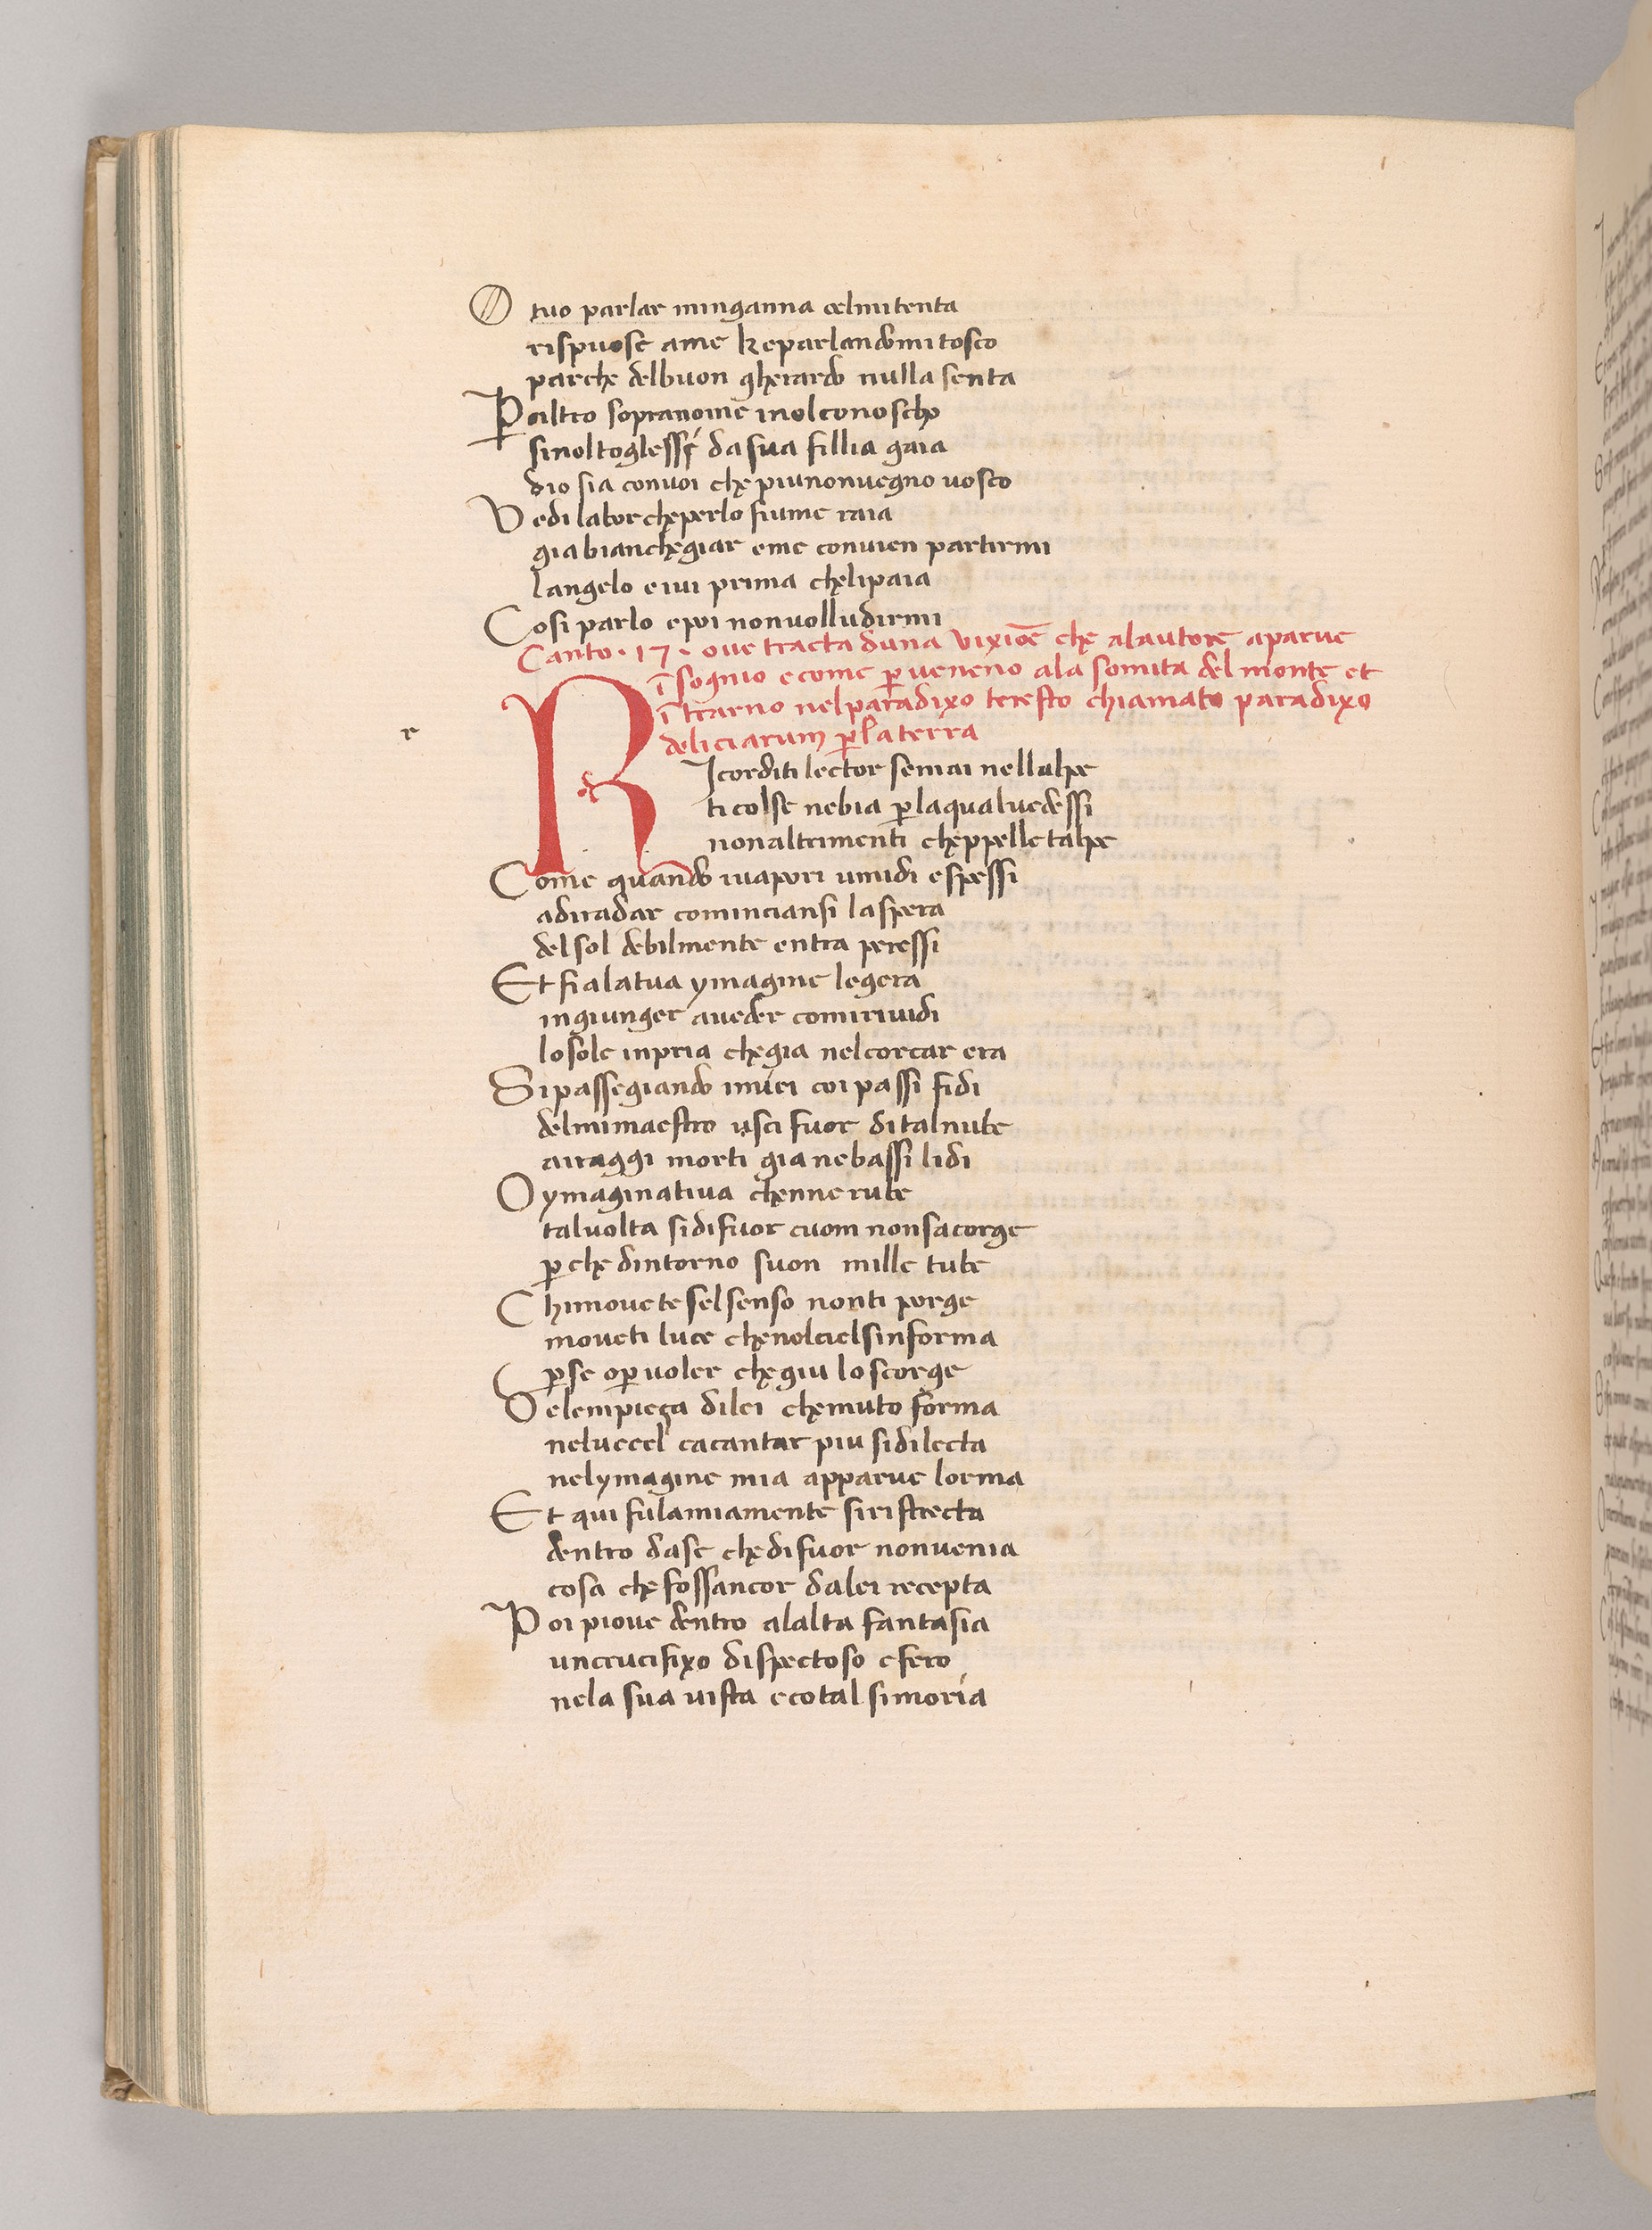 O tuo parlar minganna oelmitenta
rispuose ame keparlandomi tosco
parche delbuon gherardo nulla senta
P altro sopranome inolconoscho
sinoltoglessi dasua fillia gaia
dio sia convoi che piunonvegno vosco
Vedi labor cheperlo fiume raia
gia bianchegiar eme convien partirmi
langelo eivi prima chelipaia
Cosi parlo epoi nonvolludirmi
Canto · 17 · ove tracta duna vixioē che alautore aparve
ī sognio ecome pveneno ala somita del monte et
ītrarno nelparadixo teresto chiamato paradixo
deliciarum p la terra
r
RIcorditi lector semai nellalpe
ti colse nebia plaqualvedessi
nonaltrimenti cheppelle talpe
Come quando ivapori umidi espessi
adiradar cominciansi laspera
delsol debilmente entra peressi
Et fialatua ymagine legera
ingiunger aveder comirividi
losole inpria chegia nelcorcar era
Si passegiando imiei coi passi fidi
delmimaestro usci fuor ditalnube
airaggi morti gia nebassi lidi
O ymaginativa chenne rube
talvolta sidifuor cuom nonsacorge
pche dintorno suon mille tube
Chimovete selsenso nonti porge
moveti luce chenelcielsinforma
pse opvoler chegiu loscorge
Delempieza dilei chemuto forma
neluccel cacantar piu sidilecta
nelymagine mia apparve lorma
Et qui fulamiamente siristrecta
dentro dase chedifuor nonvenia
cosa che fossancor dalei recepta
Poi piove dentro alalta fantasia
uncrucifixo dispectoso efero
nela sua vista ecotal simoria